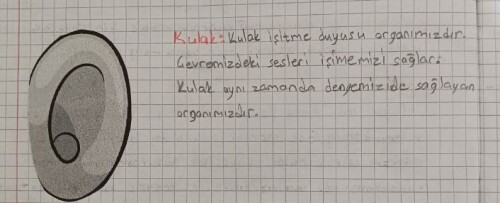 Kulak: Kulak işitme duyusu organımızdır.
Çevremizdeki sesleri işimemizi sağlar.
Kulak aynı zamanda dengemizide sağlayan
organımızdır.